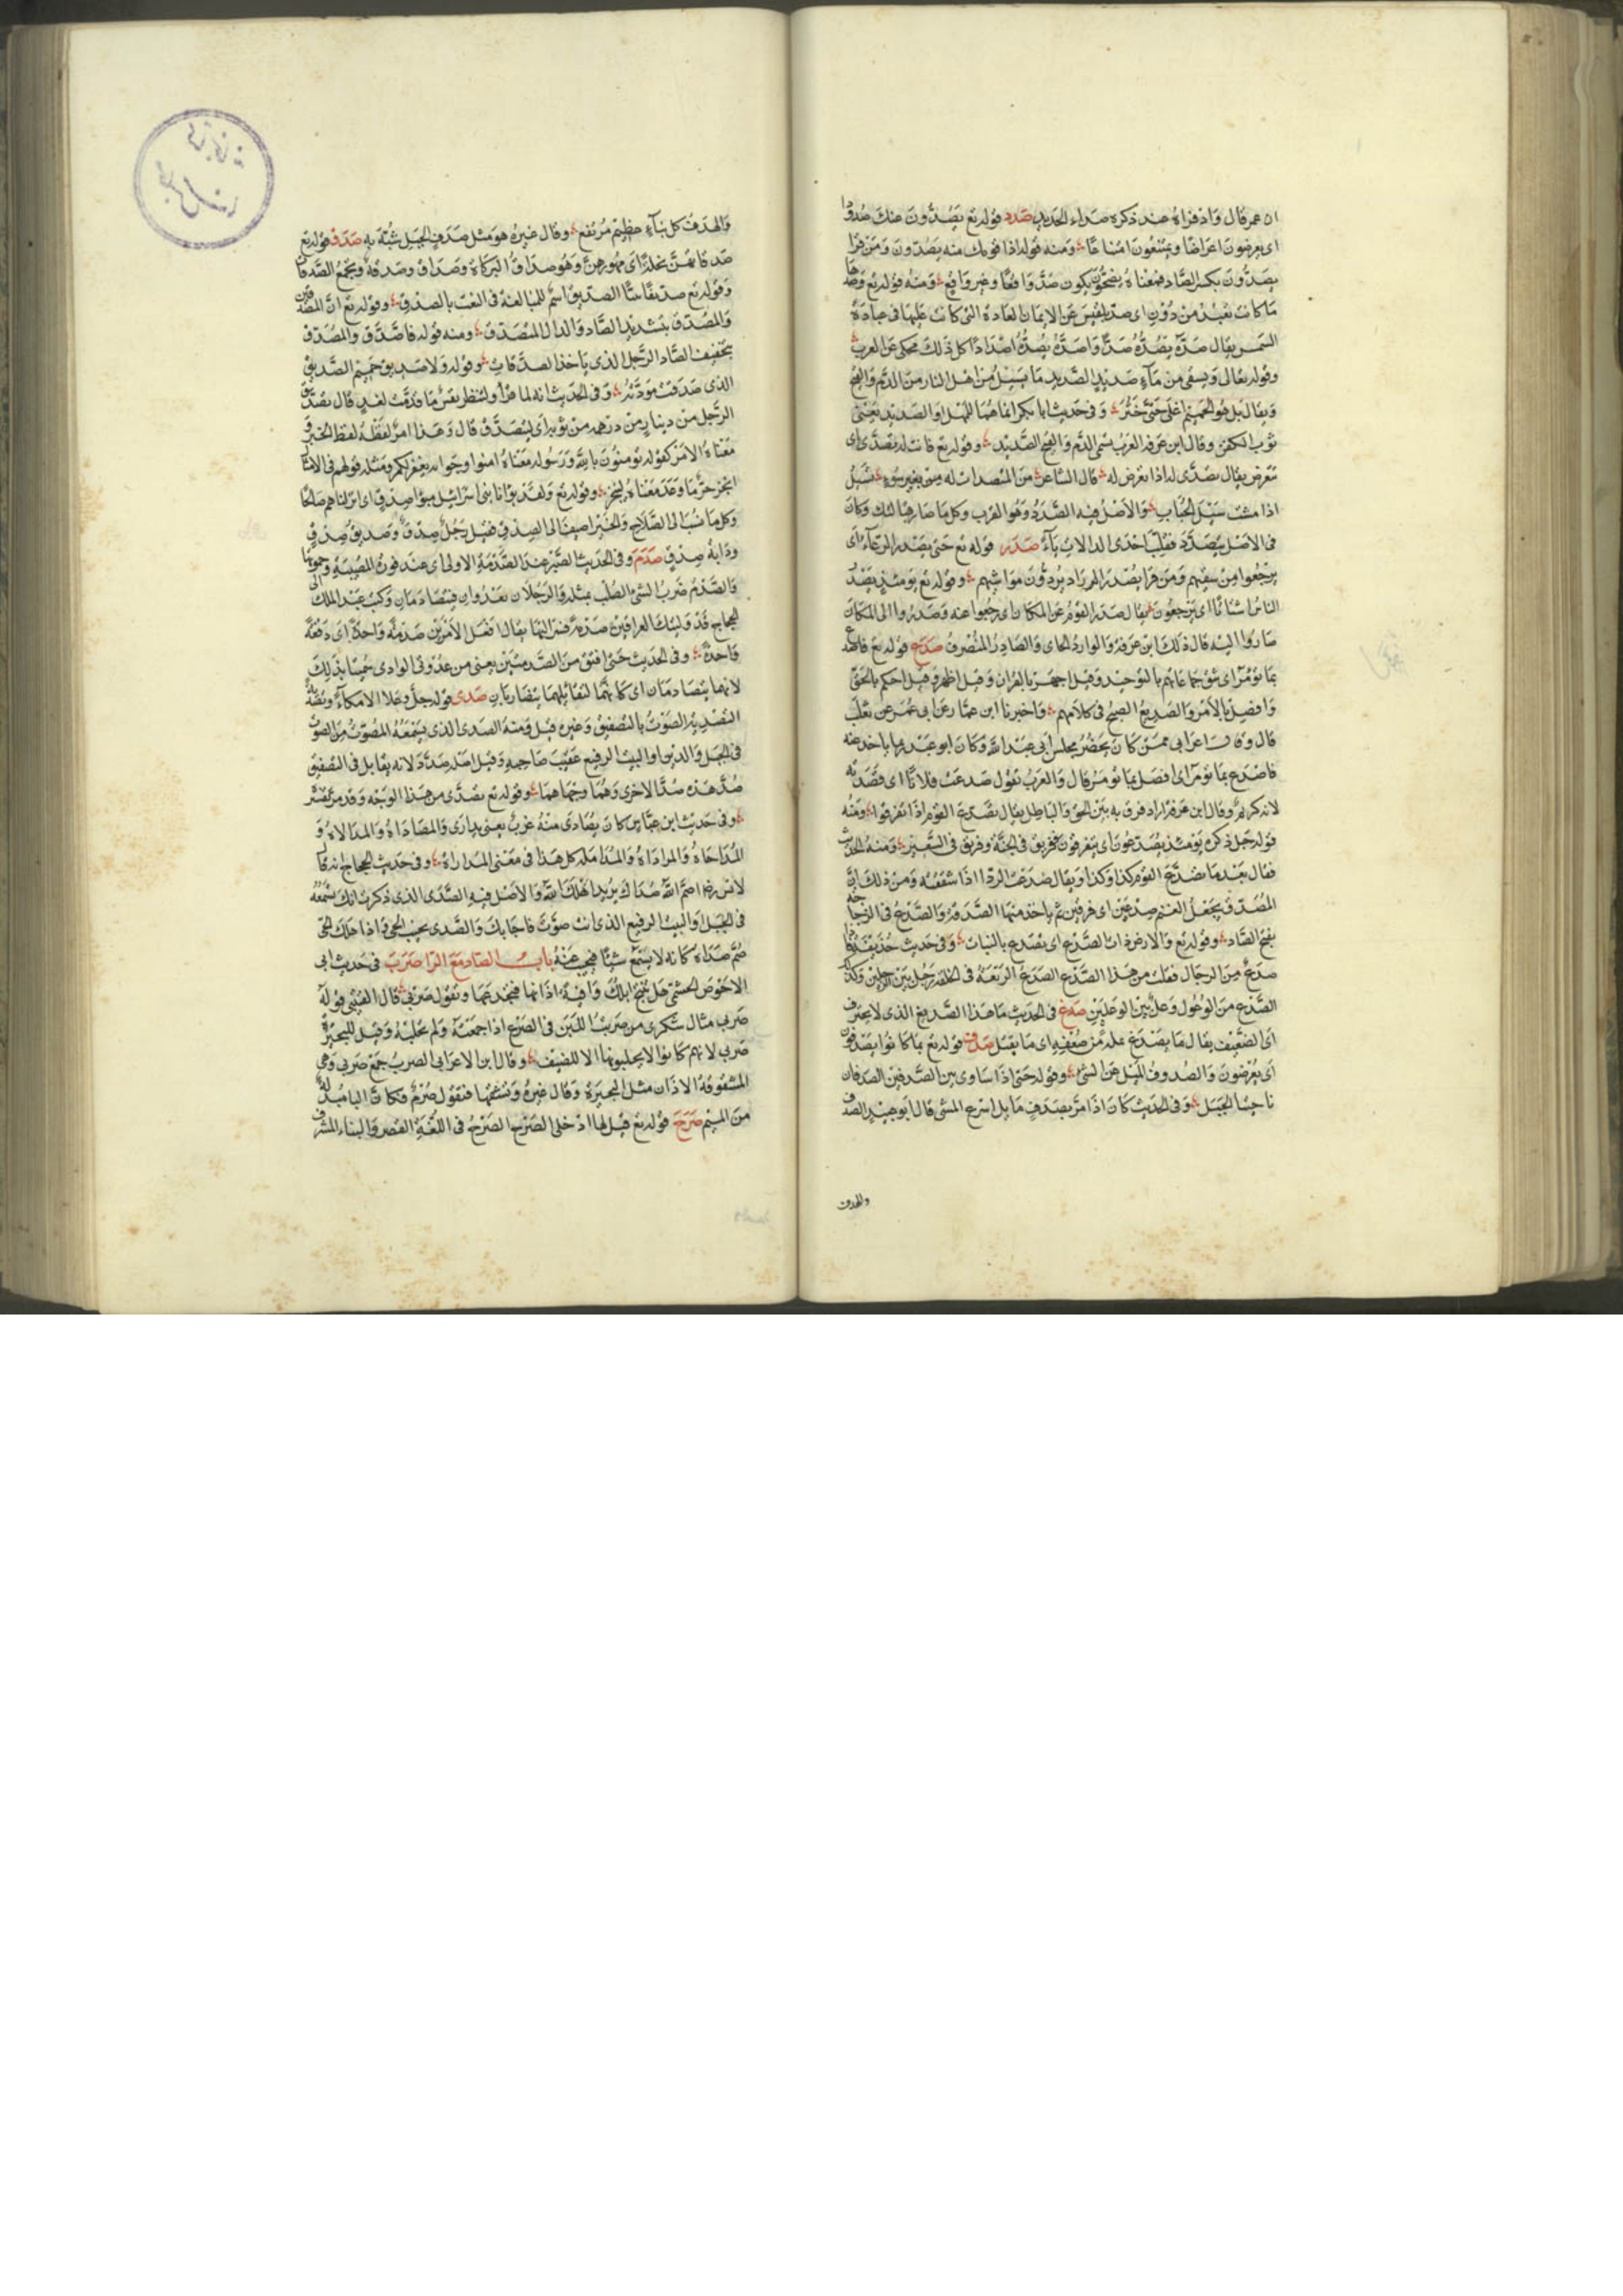 ان عمر قال وَاذفراهُ عند ذكره صداء الحديد صَدَد قوله تع يَصُدُّونَ عنكَ صُدُودًا
اى يعرضونَ اعراضًا ويمتنعُونَ امتناعًا وَمنه قوله اذا قومك منه يصدّونَ وَمَن قرا
يصِدُّونَ بكسر الصَّاد فمعناهُ يضجُّونَ يكون صَدَّ وَاقعًا وغير وَاقع وَمنهُ قوله تع وَصَدّهَا
مَا كانت تعبُدُ مِن دُون اى صدّ بلقيسَ عَن الايمان العَادةُ التى كانت عليهَا فى عبادَة
الشمس يقال صَدَّهُ يَصُدُّهُ صَدًّا وَاصَدَّهُ يُصِدُّهُ اصْدَادًا كل ذلك محكى عَن العرب
وقوله تعالى وَيسقى من مَآءٍ صَديدٍ الصَّديد مَا يَسيلُ مِن اهل النار منَ الدَّم وَالقيح
وَيقال بَل هُو الحَمِيمُ اغلىَ حَتّى خَثُرَ وَ فى حَديث ابا بكر انما هُمَا للمُهل اوَ الصَديد يَعْنى
ثَوبَ الكفن وقال ابن عَرفه العَربُ تسمى الدَّم وَالقيحَ الصَّديد وقوله تع فانت له تصَدَّى اى
تتعَرض يقال تصَدَّى له اذا تعرض له قال الشاعر منَ المتصدّيات بغير سُوءٍ تسيلُ
اذا مشت سَيْلَ الحُبَاب وَالاَصْلُ فيه الصَّدَدُ وَهُوَ القرب وكل مَا صَارَ قبالتك وَكانَ
فى الاصْل يتصَدَّدُ فقلبَت احْدَى الدالات يَآءً صَدَر قوله تع حَتى يصْدر الرّعَآءُ اى
يرْجعُوا مِنْ سقيهم وَمَن قرا يُصْدر المراد يردُّونَ مَوَاشِيهم وقوله تع يَومئذٍ يصْدُر
الناسُ اشتاتًا اى يَرجعُونَ يقال صَدَر القومُ عَن المكان اى رجعُوا عنه وَصَدَروا الى المكان
صَاروا اليه قال ذلك ابن عَرفة وَالوارد الجاى وَالصَّادِرُ المنصرفُ صَدَع قوله تع فاصْدع
بمَا تؤمَر اى شُق جَمَاعَاتهم بالتوحيد وَقيل اجهَر بالقرآن وَقيل اظهر وَقيل احكم بالحَقّ
وَافصِل بالاَمر وَالصَّديعُ الصبحُ فى كلاَمِهم وَاخبرنا ابن عَمّار عَن ابى عُمَر عن ثعْلَب
قال وَقالَ اعرَابى ممّن كانَ يَحضُرُ مجلس ابى عَبْد الله وَكانَ ابو عَبْد الله ربما ياخذ عنه
فاصْدَع بمَا تؤمَر اى افصَل بمَا تومَرُ قال وَالعَربُ تقول صَدعتُ فلانًا اى قصَدته
لانه كريمٌ وقال ابن عَرفة اراد فرق به بَيْن الحق وَالباطل يقال تصَدَّعَ القوم اذا تفرقوا وَمنهُ
قوله جَل ذكره يَومئذٍ يَصَّدَعُونَ اى يتفرقونَ ففريق فى الجنّة وفريق فى السَّعِير وَمنهُ الحديث
فقال بَعْد مَا تصَدَّعَ القوم كذا وكذا وَيقال صَدعتُ الردا اذا شققته وَمِنْ ذلكَ انَّ
المُصَدّق يَجعَلُ الغنم صِدعَين اى فرقين ثم ياخذ منهَا الصَّدَقة وَالصَّدْعُ فى الزجَاجَه
بفتح الصَّاد وقوله تع وَالارض ذات الصَّدْع اى تصْدع بالنبات وَفى حَديث حُذيفة
صَدَعٌ مِنَ الرجَال فقلت من هَذا الصَّدَع الصَدَعُ الرَبْعَةُ فى خلقه رَجُل بَيْنَ الرجلين وَكذلك
الصَّدَع منَ الوُعُول وَعلٌ بَيْن الوَعلَيْن صَدَغ فى الحديث مَا هَذا الصَّديغ الذى لا يحترف
اى الضعِيف يقال مَا يصَدَغ نملة مِن ضُعْفه اى مَا يقتل صَدَف قوله تع بمَا كانوا يصْدفونَ
اى يُعْرضونَ وَالصُدوفُ المَيل عَن الشئ وقوله حَتى اذا سَاوى بين الصَّدفين الصَدفان
ناحِيتَا الجَبَل وَفى الحديث كان اذا مَرَّ بصَدَفٍ مَائل اسرع المشى قال ابو عبيد الصدف
والهدف
وَالهَدَفُ كل بناءٍ عظيم مُرتفع وقال غيرهُ هوَ مثل صَدَفِ الجَبَل شبّهَ به صَدَق قوله تع
صَدقاتهنَّ نحلةً اى مهُورهنَّ وَهُو صدَاقُ المرأة وصَدَاق وصَدقة وَيجمَعُ الصَّدقات
وَقوله تع صدّيقًا نبيًّا الصديق اسمٌ للمبَالغة فى النعت بالصدق وقوله تع انَّ المصّدّقين
وَالمُصّدّق بتشديد الصَّاد وَالدال المتصَدّق ومنه قوله فاصَّدَّقَ والمُصَدّق
بتخفيف الصَّاد الرَّجل الذى يأخذ الصدَقات وقوله وَلا صَدِيق حَمِيم الصَّديق
الذى صَدَقتْ مودَّته وَفى الحَديث انه لما قرأ ولتنظر نفسٌ مَا قدَّمَت لغدٍ قال تصَدَّق
الرّجُل من دينارهِ من درهمه من ثوبه اى ليتصَدَّق قال وَهَذا امرٌ لفظهُ لفظ الخبر وَ
مَعْناهُ الامرُ كقوله تومنُونَ باللهِ وَرَسُوله مَعْناهُ امنوا وجَوابه يغفر لكم ومثله قولهم فى الامثال
انجز حرٌّ مَا وَعَدَ مَعْناهُ ليُنجز وقوله تع وَلقَدْ بوَّانا بنى اسرَائيل مبوَّا صِدقٍ اى انزلناهم صَالحًا
وَكل مَا نُسبَ الى الصَّلاح وَالخَيْر اضيفَ الى الصِدق فقيل رَجُلُ صِدقٍ وَصَديقُ صِدقٍ
ودَابةُ صِدْقٍ صَدَمَ وفى الحديث الصَّبْرُ عندَ الصَّدْمَةِ الاولى اى عندَ فورةُ المُصِيبةِ وَحموتهَا
وَالصَّدْمُ ضَربُ الشئ الصُلب بمثله وَالرَّجُلان يَعْدُوانِ فيتصَادمَانِ وَكتبَ عَبْد الملك الى
الحجاج قد وَليتك العِراقين صَدْمَةً فسِرْ اليهمَا يقال افعَل الاَمْرَين صَدْمَةً وَاحدةً اى دَفعَةً
وَاحدةً وفى الحَديث حَتى افتق منَ الصَّدمتَيْن يعنى من عُدْوتى الوادى سُمّيتا بذلِكَ
لانهما يتصَادمَان اى كانهُما لتقابُلهمَا يتضَاربَان صَدى قوله جل وعَلا الا مكآءً وتصْديةً
التصْدية الصَوتُ بالتصْفِيق وَغيره قيل وَمنهُ الصَدى الذى يَسْمَعُهُ المصَوِّتُ منَ الصَوْت
فى الجَبَل وَالدير او البيت الرفيع عقيبَ صَاحِبهِ وَقيل اصْلهُ صَدَّدَ لانه يقابل فى التصْفيق
صُدُّ هَذه صُدَّ الاخرى وَهُمَا وجهاهما وقوله تع تصَدَّى من هَذا الوَجه وَقد مَرَّ تفسيره
وفى حَديث ابن عبّاس كانَ يُصَادَى منهُ غربٌ يعنى يدارَى وَالمصَادَاةُ وَالمدالاةُ وَ
المُدَاجَاةُ وَالمرادَاةُ وَالمُدَاملة كل هَذا فى مَعْنى المدَاراة وفى حَديث الحجاج انه قال
لانَس اصَمَّ اللهُ صَدَاكَ يريد اهْلكَكَ اللهُ وَالاَصْل فيهِ الصَّدَى الذى ذكرت انك تسْمَعُهُ
فى الجَبَل اوَ البيت الرفيع الذى انت صَوَّتَّ فاجَابكَ وَالصَّدَى يجيبُ الحىَّ فاذا هَلكَ الحى
صُمَّ صَدَاهُ كانه لا يسمَعُ شيئًا فيجيبَ عَنْهُ بابُ الصَّاد مَعَ الرّا صَرَبَ فى حَديث ابى
الاحْوَص الجشمى هَل تنتج ابلكَ وَافيَةً اذَانها فتجدعهَا وتقول صَربى قال القتيبى قولهُ
صَربى مثال سَكرى من صَربْتُ اللبن فى الضَرْع اذا جَمَعْتهُ وَلم تحلبْهُ وَقيل للبَحيرة
صَربى لانهم كانوا لا يحلبونهَا الا للضيف وقال ابن الاعْرابى الصربُ جمع صَربى وَهى
المشقوقةُ الاذان مثل البحيرَة وَقال غيرهُ فتقول صُرُمٌ فكانَّ البا مُبدلةٌ
منَ الميم صَرَحَ قوله تع قيل لهَا ادخلى الصَرْح الصَرْحُ فى اللغَةِ القصر وَالبناء المشرف